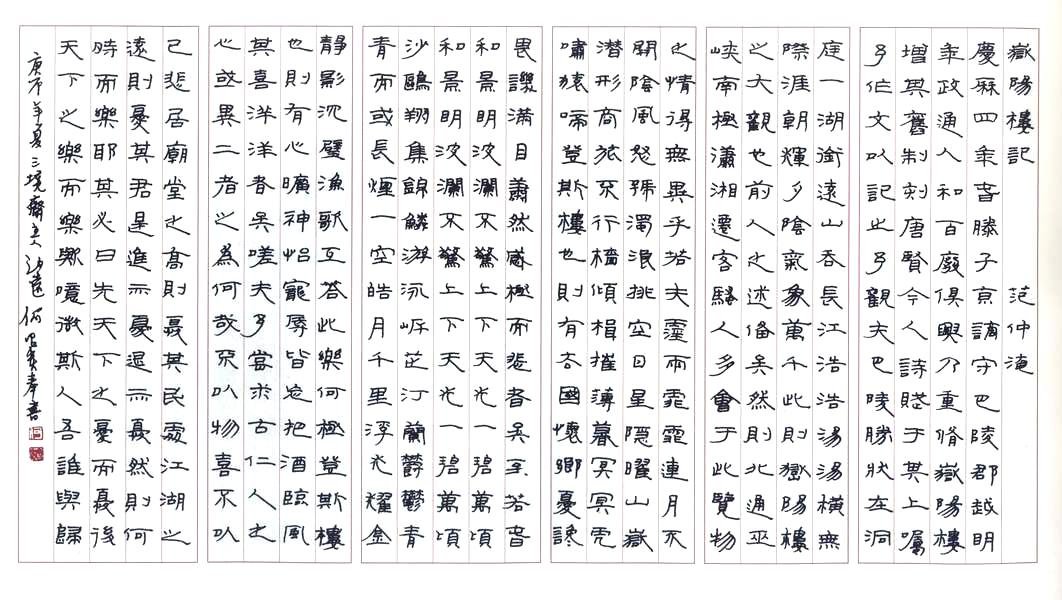 嶽陽樓記 范仲淹
慶厤四年春滕子京謫守巴陵郡越明
年政通人和百廢俱興乃重脩嶽陽樓
增其舊制刻唐賢今人詩賦于其上囑
予作文以記之予觀夫巴陵勝狀在洞
庭一湖銜遠山吞長江浩浩湯湯橫無
際涯朝輝夕陰氣象萬千此則嶽陽樓
之大觀也前人之述備矣然則北通巫
峽南極瀟湘遷客騷人多會于此覽物
之情得無異乎若夫霪雨霏霏連月不
開陰風怒號濁浪排空日星隱曜山嶽
潛形商旅不行檣傾楫摧薄暮冥冥虎
嘯猿啼登斯樓也則有去國懷鄉憂讒
畏譏滿目蕭然感極而悲者矣至若春
和景明波瀾不驚上下天光一碧萬頃
和景明波瀾不驚上下天光一碧萬頃
沙鷗翔集錦鱗游泳岸芷汀蘭鬱鬱青
青而或長煙一空皓月千里浮光耀金
靜影沉璧漁歌互荅此樂何極登斯樓
也則有心曠神怡寵辱皆忘把酒臨風
其喜洋洋者矣嗟夫予嘗求古仁人之
心或異二者之為何哉不以物喜不以
己悲居廟堂之高則憂其民處江湖之
遠則憂其君是進亦憂退亦憂然則何
時而樂耶其必曰先天下之憂而憂後
天下之樂而樂歟噫微斯人吾誰與歸
庚子年夏三境齋主人